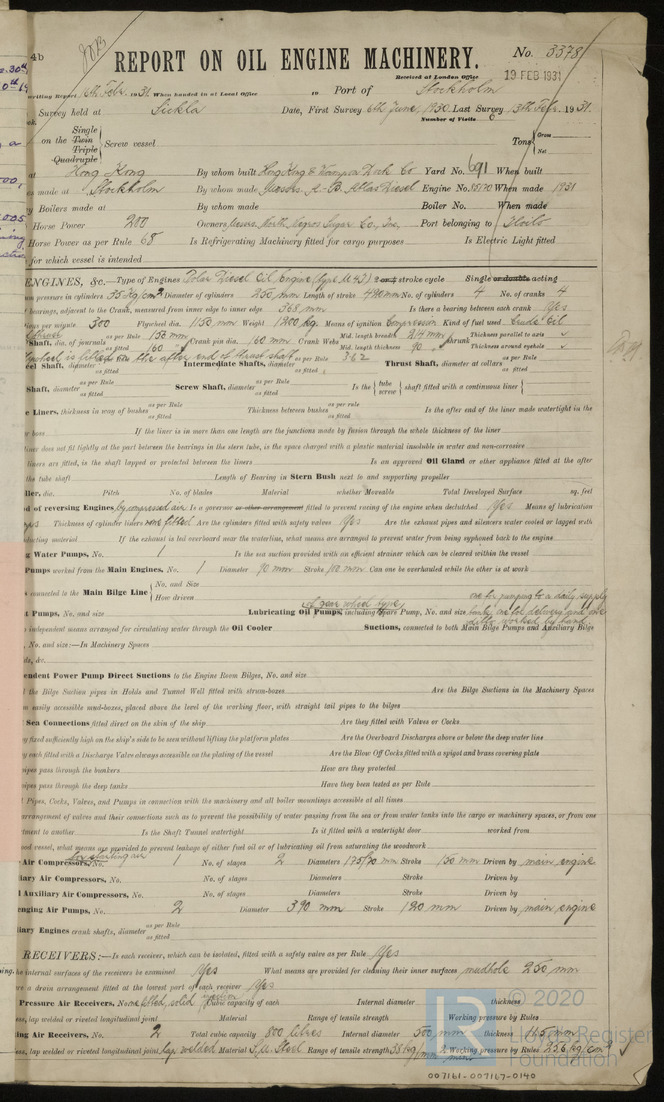 4b
REPORT ON OIL ENGINE MACHINERY.
No. 3378
Received at London Office
19 FEB 1931
writing Report 16th Feb. 1931 When handed in at Local Office
Port of Stockholm
Survey held at Sickla Date, First Survey 6th June, 1930 Last Survey 13th Feb. 1931
Number of Visits
on the Single Twin Triple Quadruple Screw vessel
Tons Gross Net
at Hong Kong By whom built Hong Kong & Whampoa Dock Co Yard No. 691 When built
s made at Stockholm By whom made Messrs. A.-B. Atlas Diesel Engine No. 85170 When made 1931
y Boilers made at By whom made Boiler No. When made
Horse Power 200 Owners Messrs. North Negros Sugar Co., Inc. Port belonging to Iloilo
Horse Power as per Rule 68 Is Refrigerating Machinery fitted for cargo purposes Is Electric Light fitted
for which vessel is intended
ENGINES, &c.—Type of Engines Polar Diesel Oil Engine (type M43) 2 stroke cycle Single or double acting
on pressure in cylinders 35 Kg/cm² Diameter of cylinders 250 mm Length of stroke 420 mm No. of cylinders 4 No. of cranks 4
bearings, adjacent to the Crank, measured from inner edge to inner edge 368 mm Is there a bearing between each crank Yes
ings per minute 300 Flywheel dia. 1150 mm Weight 1200 kg. Means of ignition Compression Kind of fuel used Crude Oil
Shaft, dia. of journals as per Rule 153 mm as fitted 160 Crank pin dia. 160 mm Crank Webs Mid. length breadth 214 mm Mid. length thickness 90 shrunk Thickness parallel to axis Thickness around eyehole
wheel is fitted on the after end of thrust shaft
eel Shaft, diameter as per Rule as fitted Intermediate Shafts, diameter as per Rule 3.62 as fitted Thrust Shaft, diameter at collars as per Rule as fitted
Shaft, diameter as per Rule as fitted Screw Shaft, diameter as per Rule as fitted Is the tube screw shaft fitted with a continuous liner
e Liners, thickness in way of bushes as per Rule as fitted Thickness between bushes as per rule as fitted Is the after end of the liner made watertight in the
r boss If the liner is in more than one length are the junctions made by fusion through the whole thickness of the liner
liner does not fit tightly at the part between the bearings in the stern tube, is the space charged with a plastic material insoluble in water and non-corrosive
liners are fitted, is the shaft lapped or protected between the liners Is an approved Oil Gland or other appliance fitted at the after
the tube shaft Length of Bearing in Stern Bush next to and supporting propeller
ller, dia. Pitch No. of blades Material whether Moveable Total Developed Surface sq. feet
d of reversing Engines by compressed air Is a governor or other arrangement fitted to prevent racing of the engine when declutched Yes Means of lubrication
Thickness of cylinder liners none fitted Are the cylinders fitted with safety valves Yes Are the exhaust pipes and silencers water cooled or lagged with
ducting material If the exhaust is led overboard near the waterline, what means are arranged to prevent water from being syphoned back to the engine
g Water Pumps, No. 1 Is the sea suction provided with an efficient strainer which can be cleared within the vessel
Pumps worked from the Main Engines, No. 1 Diameter 90 mm Stroke 100 mm Can one be overhauled while the other is at work
connected to the Main Bilge Line No. and Size How driven
of gear wheel type one for pumping to a daily supply
t Pumps, No. and size Lubricating Oil Pumps, including Spare Pump, No. and size tank, one for delivery and one
ditto worked by hand
independent means arranged for circulating water through the Oil Cooler Suctions, connected to both Main Bilge Pumps and Auxiliary Bilge
, No. and size:—In Machinery Spaces
ds, &c.
endent Power Pump Direct Suctions to the Engine Room Bilges, No. and size
l the Bilge Suction pipes in Holds and Tunnel Well fitted with strum-boxes Are the Bilge Suctions in the Machinery Spaces
m easily accessible mud-boxes, placed above the level of the working floor, with straight tail pipes to the bilges
Sea Connections fitted direct on the skin of the ship Are they fitted with Valves or Cocks
y fixed sufficiently high on the ship's side to be seen without lifting the platform plates Are the Overboard Discharges above or below the deep water line
y each fitted with a Discharge Valve always accessible on the plating of the vessel Are the Blow Off Cocks fitted with a spigot and brass covering plate
pipes pass through the bunkers How are they protected
pipes pass through the deep tanks Have they been tested as per Rule
l Pipes, Cocks, Valves, and Pumps in connection with the machinery and all boiler mountings accessible at all times
arrangement of valves and their connections such as to prevent the possibility of water passing from the sea or from water tanks into the cargo or machinery spaces, or from one
tment to another Is the Shaft Tunnel watertight Is it fitted with a watertight door worked from
ood vessel, what means are provided to prevent leakage of either fuel oil or of lubricating oil from saturating the woodwork
for starting air
Air Compressors, No. 1 No. of stages 2 Diameters 175/70 mm Stroke 150 mm Driven by main engine
iary Air Compressors, No. No. of stages Diameters Stroke Driven by
l Auxiliary Air Compressors, No. No. of stages Diameters Stroke Driven by
enging Air Pumps, No. 2 Diameter 390 mm Stroke 120 mm Driven by main engine
liary Engines crank shafts, diameter as per Rule as fitted
RECEIVERS:—Is each receiver, which can be isolated, fitted with a safety valve as per Rule Yes
he internal surfaces of the receivers be examined Yes What means are provided for cleaning their inner surfaces mudhole 250 mm
re a drain arrangement fitted at the lowest part of each receiver Yes
Pressure Air Receivers, No. none fitted, solid injection Cubic capacity of each Internal diameter thickness
ess, lap welded or riveted longitudinal joint Material Range of tensile strength Working pressure by Rules
ing Air Receivers, No. 2 Total cubic capacity 800 litres Internal diameter 500 mm thickness
ess, lap welded or riveted longitudinal joint lap welded Material S.M. Steel Range of tensile strength Working pressure by Rules 25.6 kg/cm²
© 2020
Lloyd's Register
Foundation
007161-007167-0140